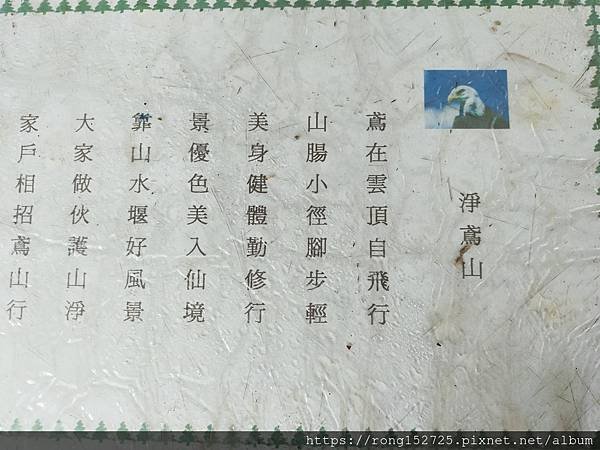 淨鳶山
鳶在雲頂自飛行
山腸小徑腳步輕
美身健體勤修行
景優色美入仙境
靠山水堰好風景
大家做伙護山淨
家戶相招鳶山行
https://rong152725.pixnet.net/album